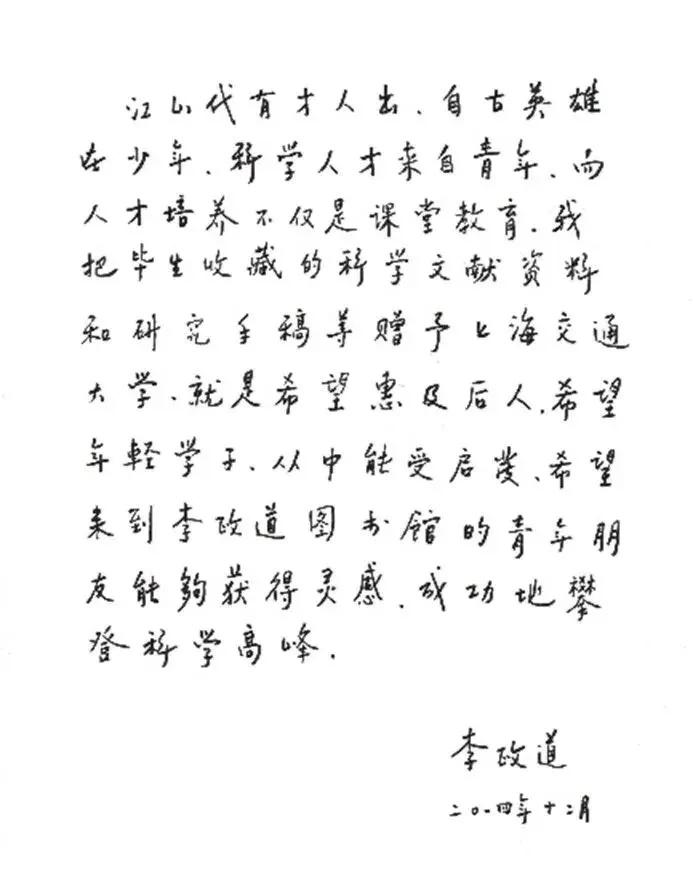 江山代有才人出、自古英雄
在少年、科学人才来自青年、而
人才培养不仅是课堂教育.我
把毕生收藏的科学文献资料
和研究手稿等赠予上海交通
大学、就是希望惠及后人.希望
年轻学子、从中能受启发、希望
来到李政道图书馆的青年朋
友能夠获得灵感.成功地攀
登科学高峰.
李政道
二〇一四年十二月